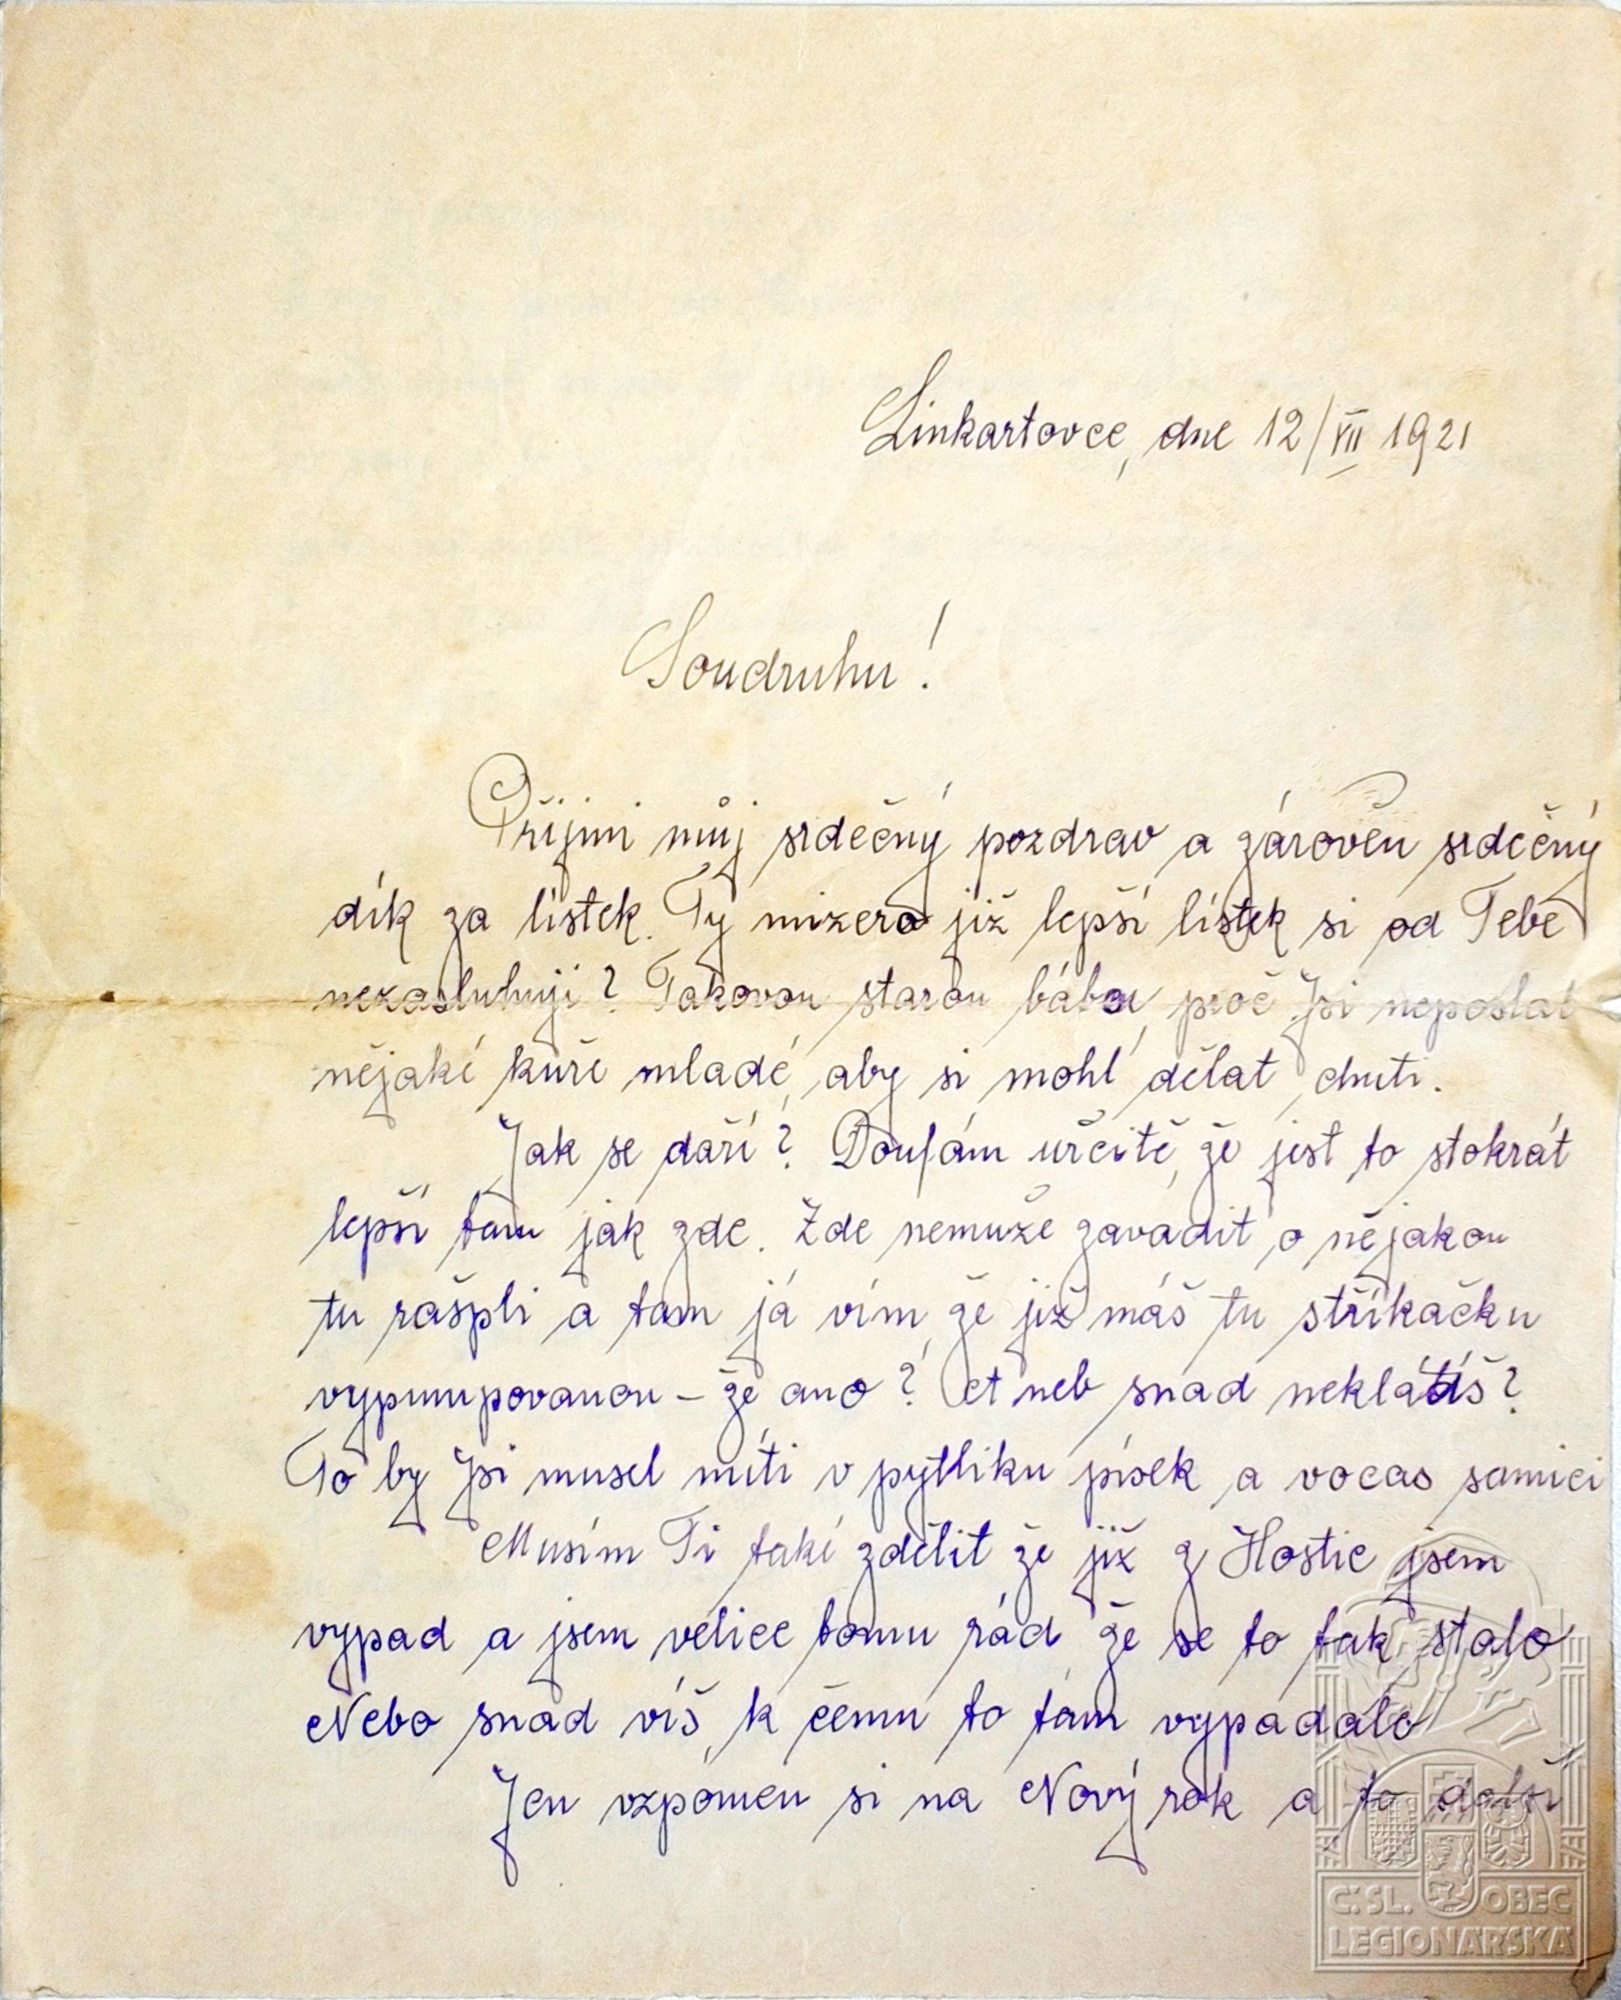 Linkartovce, dne 12/VII 1921
Soudruhu!
Přijmi můj srdečný pozdrav a zároveň srdečný
dík za lístek. Ty mizero již lepší lístek si od Tebe
nezasluhuji? Takovou starou bábou, proč Jsi neposlal
nějaké kuře mladé, aby si mohl dělat chuti.
Jak se daří? Doufám určitě, že jest to stokrát
lepší tam jak zde. Zde nemuže zavadit o nějakou
tu rašpli a tam já vím, že již máš tu stříkačku
vypumpovanou – že ano? A neb snad neklátíš?
To by Jsi musel míti v pytlíku písek a vocas samici
Musím Ti také zdělit že již z Hostic jsem
vypad a jsem velice tomu rád že se to tak stalo
Nebo snad víš, k čemu to tam vypadalo
Jen vzpomen si na Nový rok a to další
Č. SL. OBEC
LEGIONÁŘSKÁ